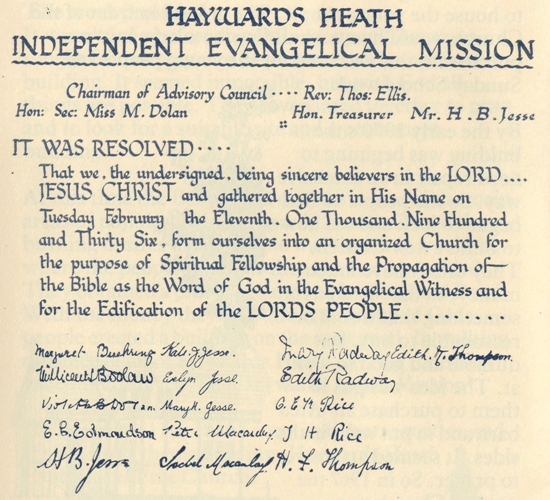 HAYWARDS HEATH
INDEPENDENT EVANGELICAL MISSION
Chairman of Advisory Council .... Rev: Thos: Ellis.
Hon: Sec: Miss M. Dolan :: Hon. Treasurer Mr. H. B. Jesse
IT WAS RESOLVED ....
That we, the undersigned, being sincere believers in the LORD....
JESUS CHRIST and gathered together in His Name on
Tuesday the Eleventh, One Thousand, Nine Hundred
and Thirty Six, form ourselves into an organized Church for
the purpose of Spiritual Fellowship and the Propagation of
the Bible as the Word of God in the Evangelical Witness and
for the Edification of the LORDS PEOPLE............
Margaret Kate J. Jesse. Mary Radway Edith. M. Thompson.
Evelyn Jesse. Edith Radway
Mary K. Jesse. Rice
E. E. Edmondson Peter Macaulay J H Rice
H B. Jesse Isobel Macaulay H. F. Thompson